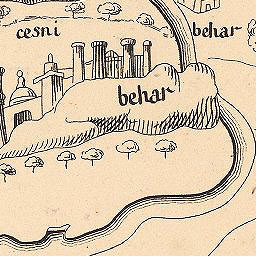 cesni
behar
behar